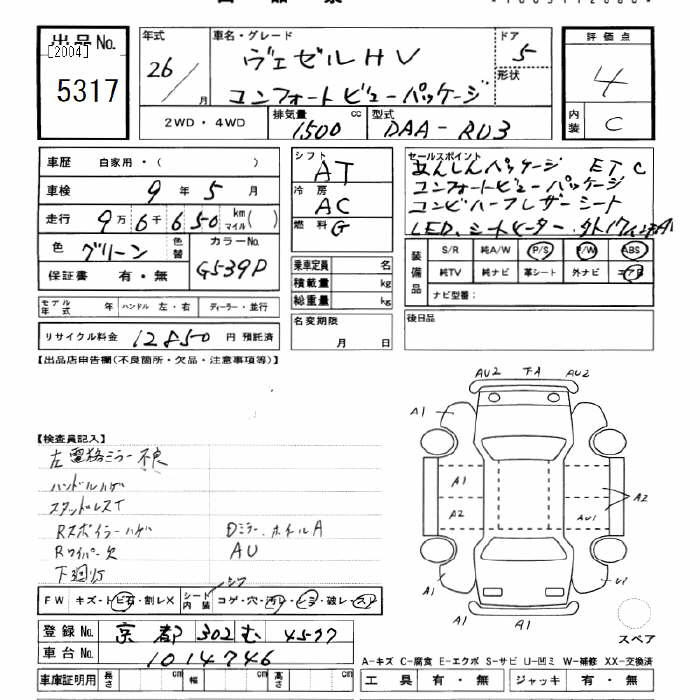 出品No.
[2004]
5317
年式
26/月
車名・グレード
ヴェゼルHV
コンフォートビューパッケージ
ドア
5
形状
評価点
4
内装
C
2WD・4WD
排気量
1500 cc
型式
DAA-RU3
車歴 自家用・( )
車検 9年5月
走行 9万6千650 km マイル( )
色 グリーン 色替
カラーNo.
G539P
保証書 有・無
シフト AT
冷房 AC
燃料 G
乗車定員 名
積載量 kg
総重量 kg
名変期限
月 日
セールスポイント
あんしんパッケージ ETC
コンフォートビューパッケージ
コンビハーフレザーシート
LED、シートヒーター
装備品
S/R 純A/W P/S P/W ABS
純TV 純ナビ 革シート 外ナビ エアB
ナビ型番:
後日品
モデル年式 年 ハンドル 左・右 ディーラー・並行
リサイクル料金 12850円 預託済
【出品店申告欄(不良箇所・欠品・注意事項等)】
【検査員記入】
左電格ミラー不良
ハンドルハゲ
スタッドレスT
Rスポイラーハゲ Dミラー、ホイルA
Rワイパー欠 AU
下廻り
シワ
FW キズ・トビ石・割レX シート内装 コゲ・穴・汚レ・シミ・破レ・スレ
登録No. 京都 302 む 4577
車台No. 1014746
車庫証明用 長さ cm 幅 cm 高さ cm
AU2 AU2
A1
A1 A2
A2 AU1
A1 U1
A1 A1
スペア
A-キズ C-腐食 E-エクボ S-サビ U-凹ミ W-補修 XX-交換済
工具 有・無 ジャッキ 有・無